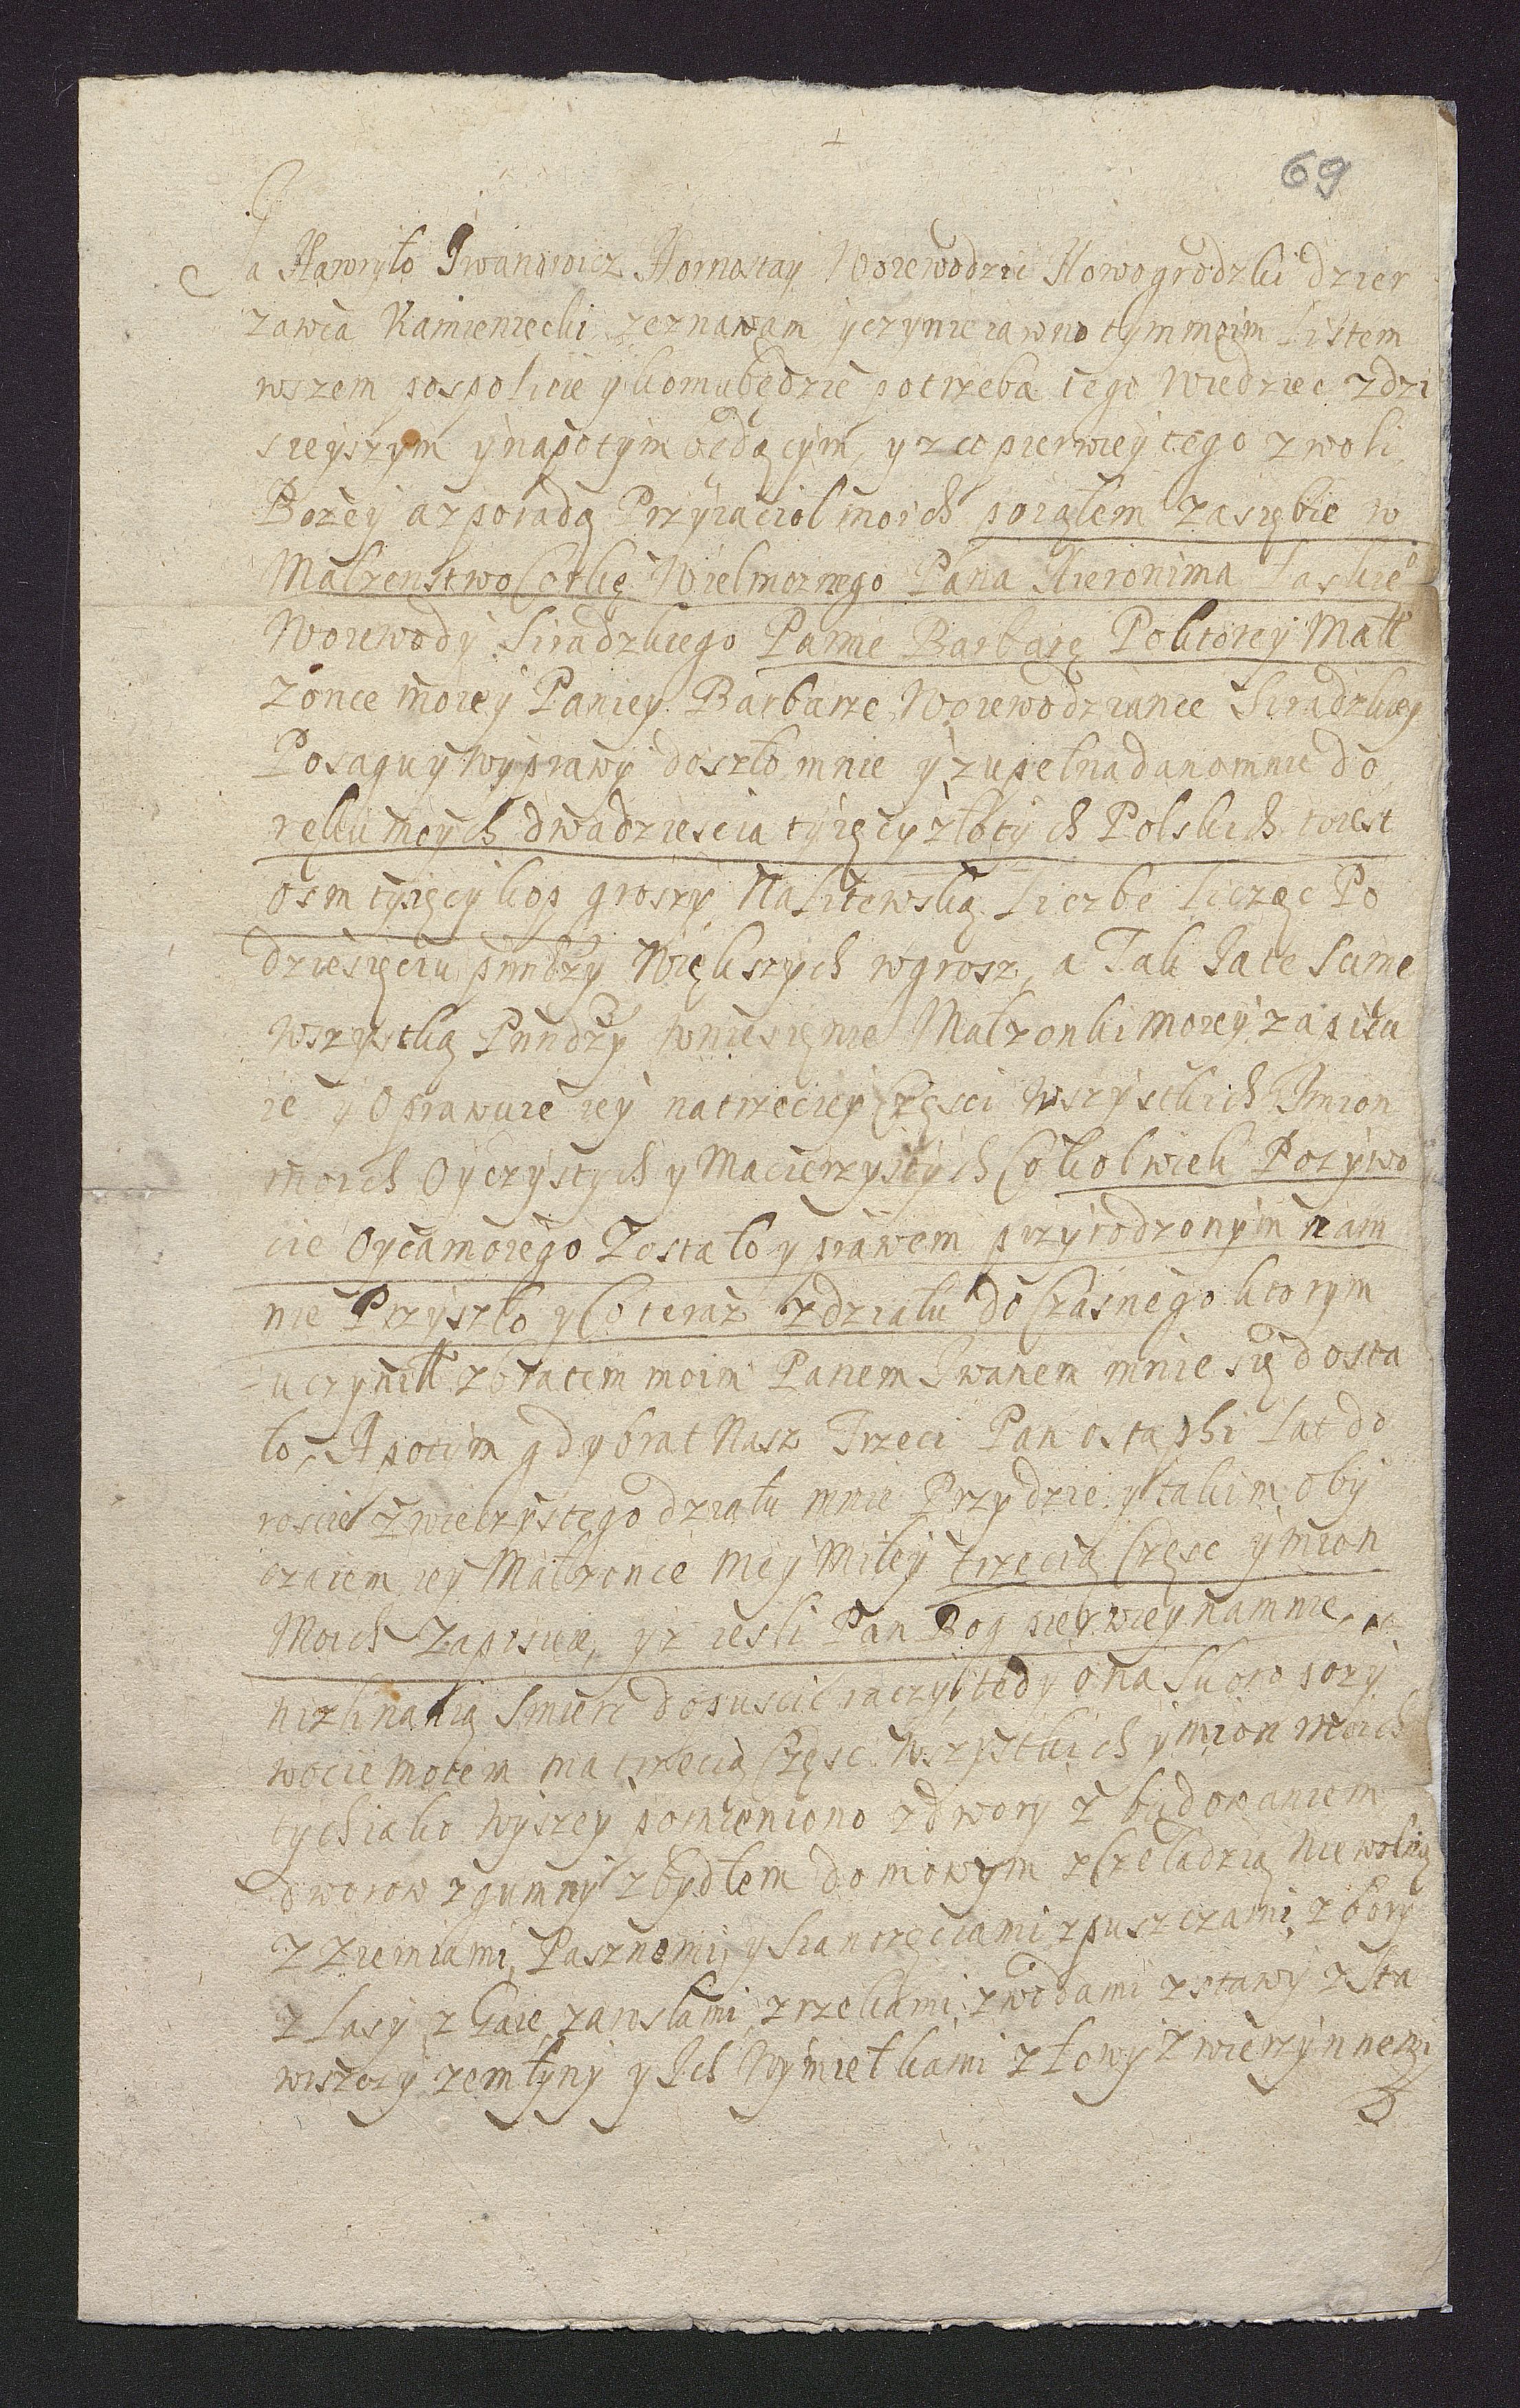 69
Ja Hawryło Iwanowicz Hornostay Woiewodzic Nowogrodzki dzier
zawca Kamieniecki zeznawam y czynie iawno tym moim Listem
wszem pospolicie y komu będzie potrzeba tego wiedziec z dzi
sieyszym y napotym będącym, yz co pierwey tego z woli
Bozey a z poradą Przyiaciol moich poiąłem za siębie w
Malzenstwo Corkę Wielmoznego Pana Hieronima Laskieo
Woiewody Siradzkiego Pannę Barbarę Po ktorey Małł
zonce moiey Paniey Barbarze Woiewodziance Siradzkiey
Posagu y wyprawy doszło mnie y zupełna dano mnie do
ręku moych dwadziescia tysięcy złotych Polskich to iest
osm tysięcy kop groszy Na Litewską Liczbe Licząc Po
dziesięciu pinędzy Większych w grosz, a Tak Ja te Sume
wszystką Pinędzy wniesięnie Malzonki moiey zapisu
ie y Oprawuie iey na trzeciey Częsci wszystkich Imion
moich Oyczystych y Macierzystych Cokolwiek Po zywo
cie Oyca moiego Zostało y prawem przyrodzonym na m
nie Przyszło y Co teraz z działu do Czasnego ktorym
uczynił z bratem moim Panem Iwanem mnie się dosta
ło, A potym gdy brat Nasz Trzeci Pan Ostaphi Lat do
roscie z wieczystego działu mnie Przydzie y takim oby
czaiem iey Malzonce mey Miłey trzecią Częsc ymion
Moich Zapisuie, yz iesli Pan Bog pierwey na mnie
nizli na nią Smierc dopuscic raczy, tedy ona Skoro po zy
wocie moiem ma trzecią Częsc wszystkich ymion moich
tych iako wyszey pomieniono z dwory z budowaniem
dworow z gumny z bydłem domowym z Czeladzią Niewolną
z Ziemiami Pasznemi y Sianozęciami z puszczami z bory
z Lasy z Gaie zaroslami z rzekami z wodami z stawy z Sta
wiszczy z młyny y Ich Wymiełkami z łowy zwierzynnemi